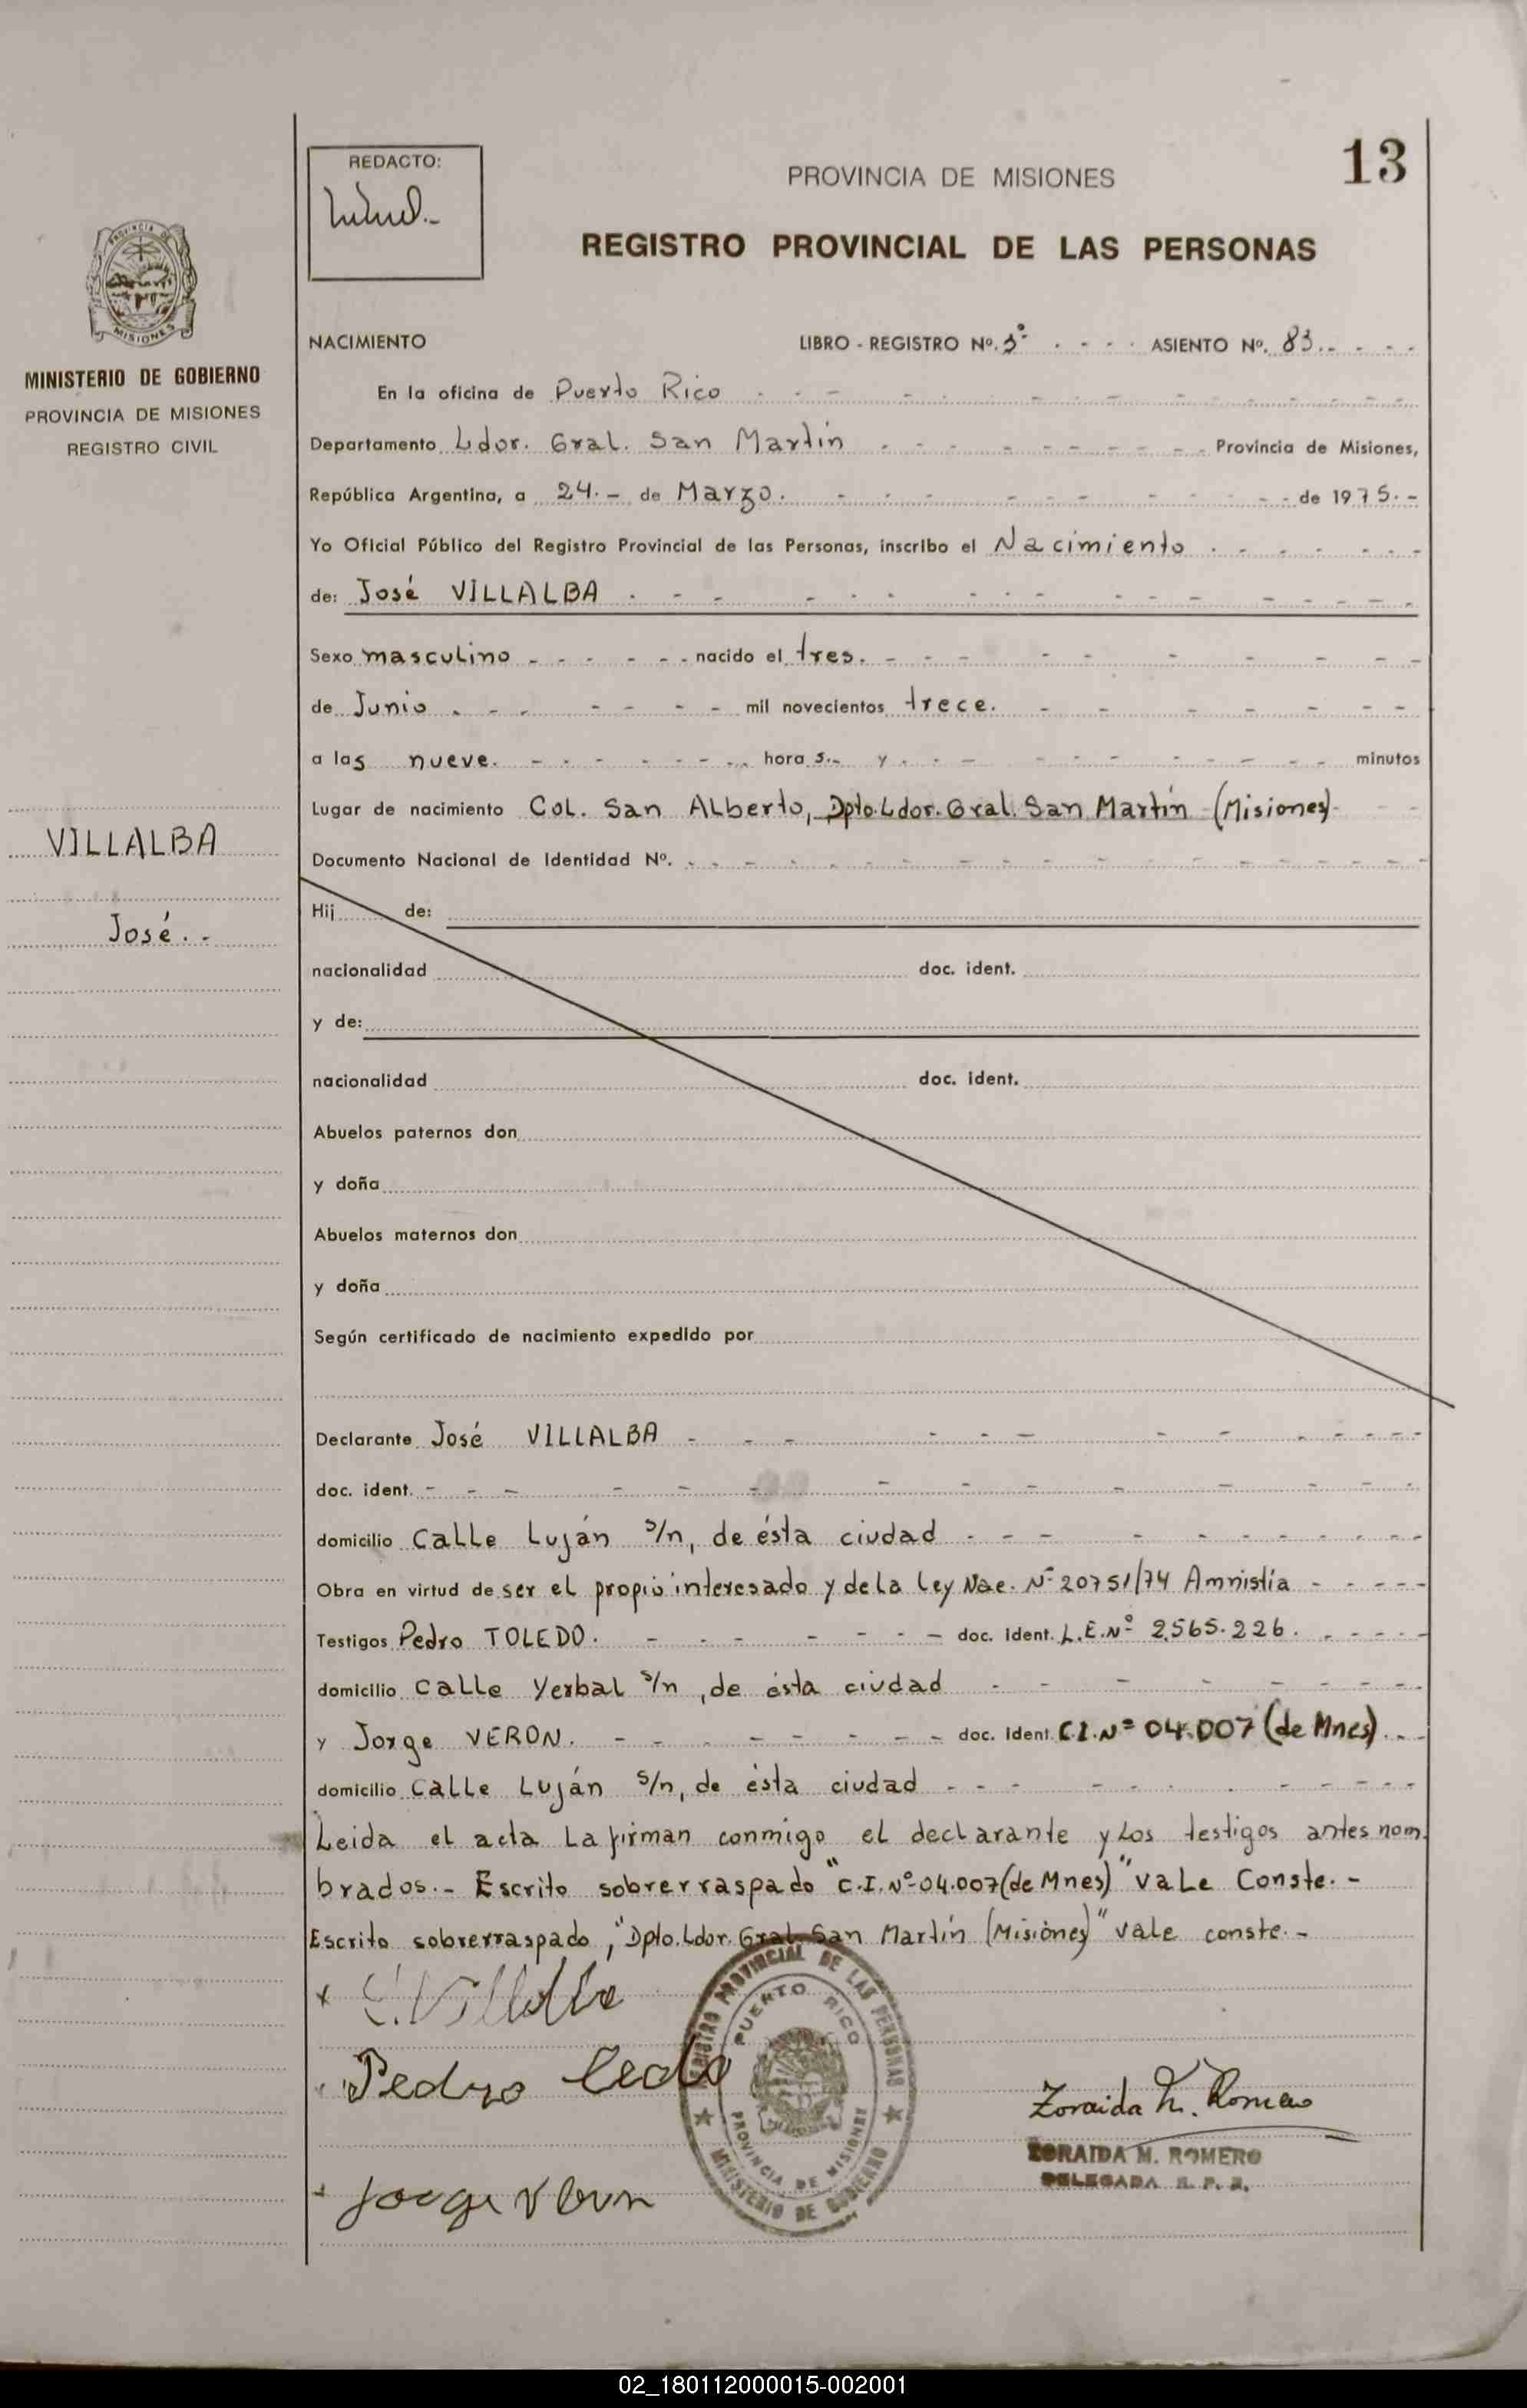 13
REDACTO:
PROVINCIA DE MISIONES
REGISTRO PROVINCIAL DE LAS PERSONAS
PROVINCIA DE
MISIONES
MINISTERIO DE GOBIERNO
PROVINCIA DE MISIONES
REGISTRO CIVIL
NACIMIENTO LIBRO - REGISTRO Nº. 3º - - - - ASIENTO Nº. 83.- - - -
En la oficina de Puerto Rico
Departamento Ldor. Gral. San Martín - - - Provincia de Misiones,
República Argentina, a 24.- de Marzo. - - - de 1975.-
Yo Oficial Público del Registro Provincial de las Personas, inscribo el Nacimiento
de: José VILLALBA
Sexo masculino - - - nacido el tres. - - -
de Junio - - - mil novecientos trece. - - -
a las nueve. - - - hora s.- y - - - minutos
Lugar de nacimiento Col. San Alberto, Dpto. Ldor. Gral. San Martín (Misiones)-
Documento Nacional de Identidad Nº. - - -
VILLALBA
José.-
Hij de:
nacionalidad doc. ident.
y de:
nacionalidad doc. ident.
Abuelos paternos don
y doña
Abuelos maternos don
y doña
Según certificado de nacimiento expedido por
Declarante José VILLALBA - - -
doc. ident. - - -
domicilio Calle Luján s/n, de ésta ciudad - - -
Obra en virtud de ser el propio interesado y de la Ley Nac. Nº 20751/74 Amnistía - - -
Testigos Pedro TOLEDO. - - - doc. ident. L.E.Nº 2.565.226. - - -
domicilio Calle Yerbal s/n, de ésta ciudad - - -
y Jorge VERON. - - - doc. ident. C.I.Nº 04.007 (de Mnes).-
domicilio Calle Luján s/n, de ésta ciudad - - -
Leida el acta la firman conmigo el declarante y los testigos antes nom
brados.- Escrito sobrerraspado "C.I.Nº-04.007(de Mnes)" vale Conste.-
Escrito sobrerraspado, "Dpto. Ldor. Gral. San Martín (Misiones)" vale conste.-
Villalba
Pedro
Jorge Veron
REGISTRO PROVINCIAL DE LAS PERSONAS
PUERTO RICO
PROVINCIA DE MISIONES
MINISTERIO DE GOBIERNO
Zoraida M. Romero
ZORAIDA M. ROMERO
DELEGADA R. P. P.
02_180112000015-002001